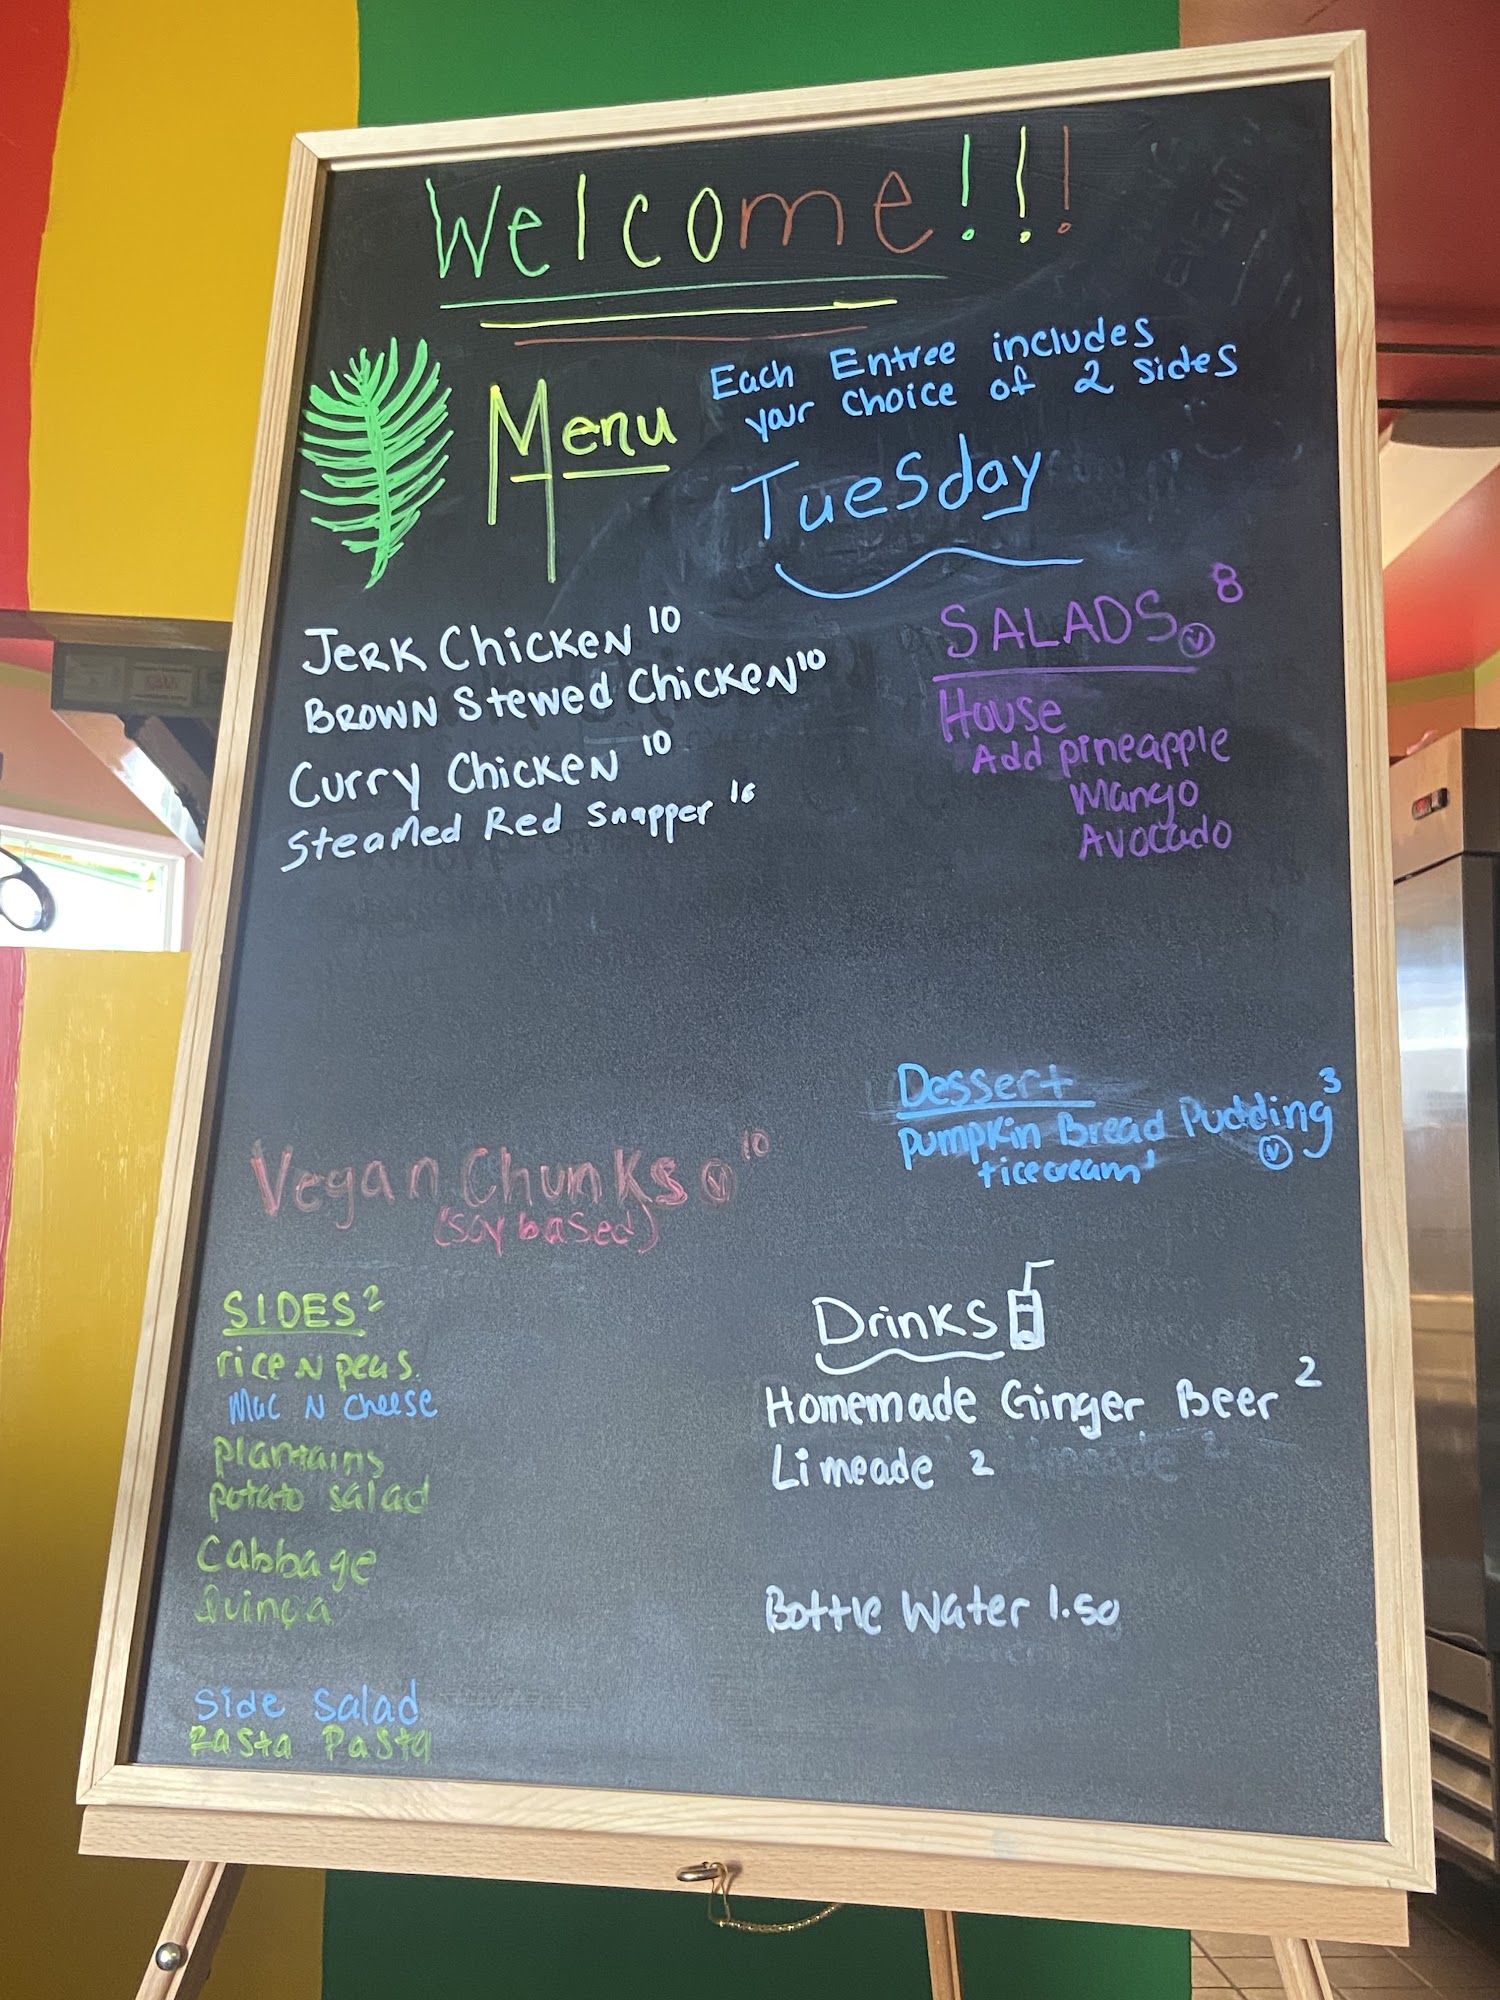 Welcome!!!
Menu
Each Entree includes
your choice of 2 sides
Tuesday
Jerk Chicken 10
Brown Stewed Chicken 10
Curry Chicken 10
Steamed Red Snapper 16
SALADS V 8
House
Add pineapple
Mango
Avocado
Dessert
Pumpkin Bread Pudding 3
V
+icecream 1
Vegan Chunks V 10
(soy based)
SIDES 2
rice N peas.
Mac N Cheese
plantains
potato salad
Cabbage
Quinoa
Side Salad
Rasta Pasta
Drinks
Homemade Ginger Beer 2
Limeade 2
Bottle Water 1.50